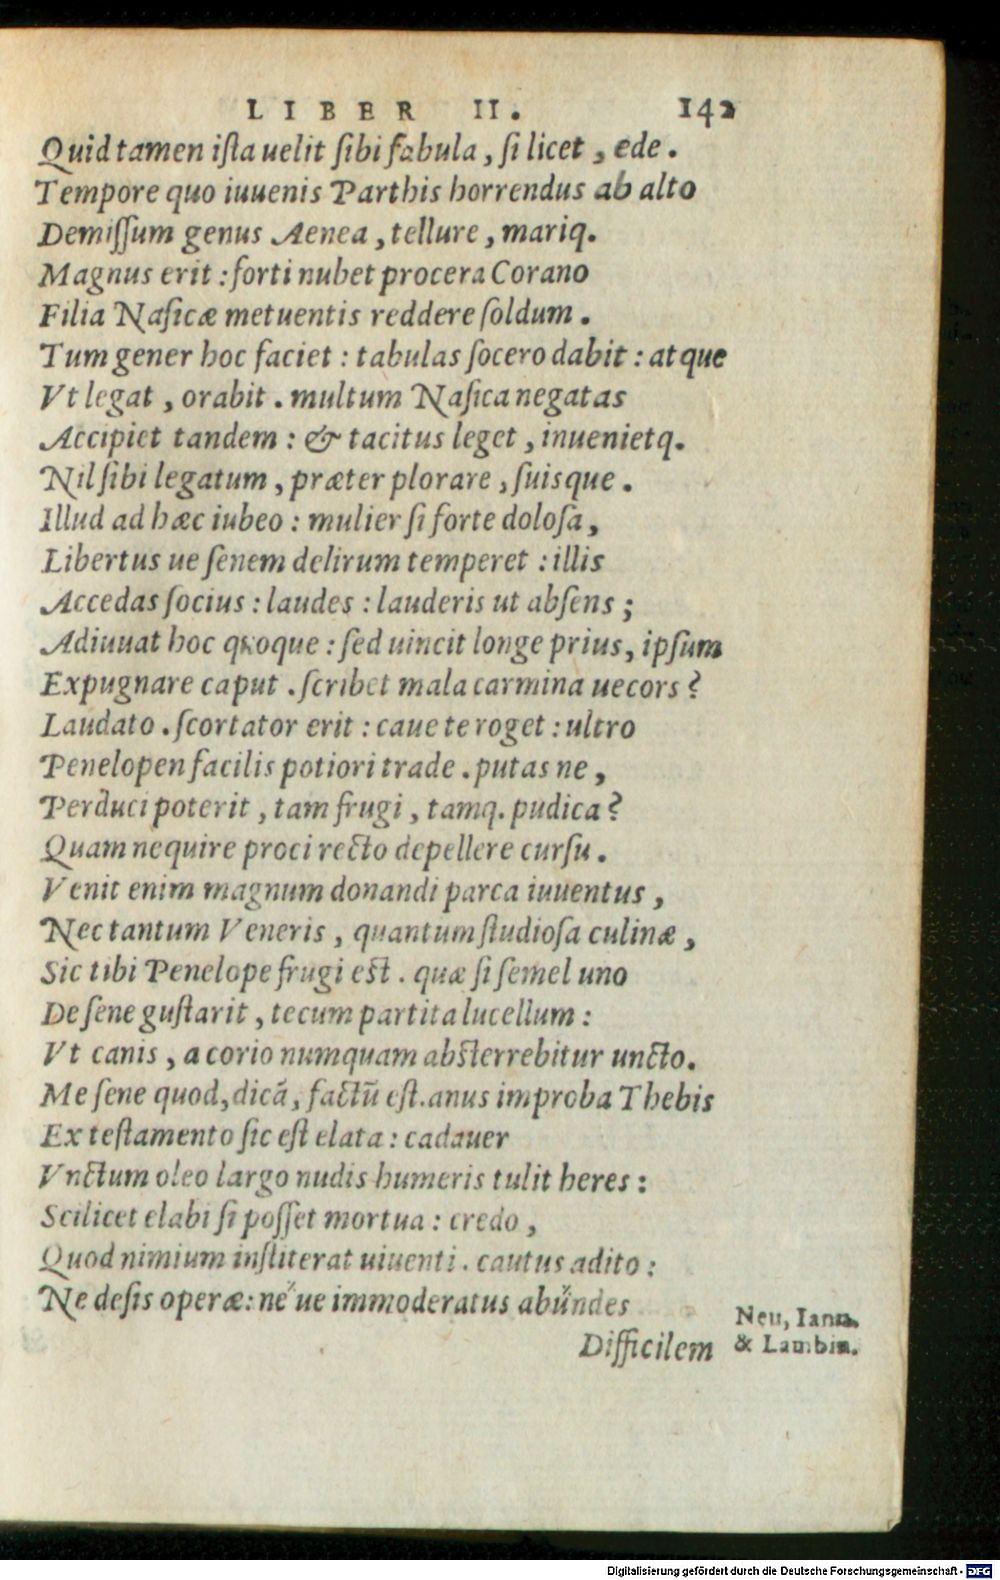 LIBER II. 142
Quid tamen ista uelit sibi fabula, si licet, ede.
Tempore quo iuuenis Parthis horrendus ab alto
Demissum genus Aenea, tellure, mariq.
Magnus erit: forti nubet procera Corano
Filia Nasicæ metuentis reddere soldum.
Tum gener hoc faciet: tabulas socero dabit: atque
Vt legat, orabit. multum Nasica negatas
Accipiet tandem: & tacitus leget, inuenietq.
Nil sibi legatum, præter plorare, suisque.
Illud ad hæc iubeo: mulier si forte dolosa,
Libertus ue senem delirum temperet: illis
Accedas socius: laudes: lauderis ut absens;
Adiuuat hoc quoque: sed uincit longe prius, ipsum
Expugnare caput. scribet mala carmina uecors?
Laudato. scortator erit: caue te roget: ultro
Penelopen facilis potiori trade. putas ne,
Perduci poterit, tam frugi, tamq. pudica?
Quam nequire proci recto depellere cursu.
Venit enim magnum donandi parca iuuentus,
Nec tantum Veneris, quantum studiosa culinæ,
Sic tibi Penelope frugi est. quæ si semel uno
De sene gustarit, tecum partita lucellum:
Vt canis, a corio numquam absterrebitur uncto.
Me sene quod, dicã, factũ est. anus improba Thebis
Ex testamento sic est elata: cadauer
Vnctum oleo largo nudis humeris tulit heres:
Scilicet elabi si posset mortua: credo,
Quod nimium institerat uiuenti. cautus adito:
Ne desis operæ: ne ̋ ue immoderatus abundes
Difficilem
Neu, Iann.
& Lambin.
Digitalisierung gefördert durch die Deutsche Forschungsgemeinschaft - DFG